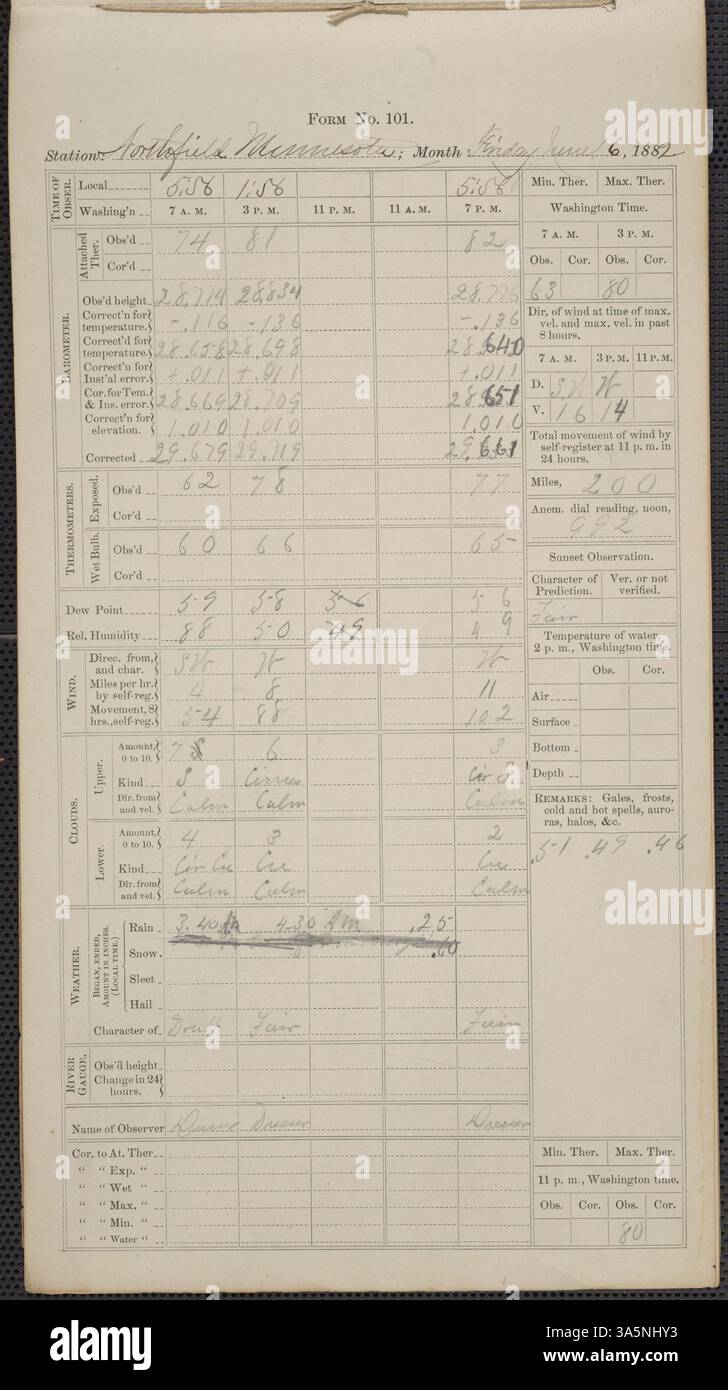 FORM NO. 101.
Station: Northfield Minnesota; Month: Friday June 16, 1882
TIME OF OBSER.
Local 5:58 1:58 5:58
Washing'n 7 A. M. 3 P. M. 11 P. M. 11 A. M. 7 P. M.
BAROMETER.
Attached Ther.
Obs'd 74 81 82
Cor'd
Obs'd height 28.774 28.834 28.776
Correct'n for temperature. -.116 -.136 -.136
Correct'd for temperature. 28.658 28.698 28.640
Correct'n for Inst'al error. +.011 +.011 +.011
Cor. for Tem. & Ins. error. 28.669 28.709 28.651
Correct'n for elevation. 1.010 1.010 1.010
Corrected 29.679 29.719 29.661
THERMOMETERS.
Exposed.
Obs'd 62 78 77
Cor'd
Wet Bulb.
Obs'd 60 66 65
Cor'd
Dew Point 59 58 56 56
Rel. Humidity 88 50 49 49
WIND.
Direc. from, and char. SW W W
Miles per hr. by self-reg. 4 8 11
Movement, 8 hrs., self-reg. 54 88 102
CLOUDS.
Upper.
Amount, 0 to 10. 7 6 3
Kind S Cirrus Cir S
Dir. from and vel. Calm Calm Calm
Lower.
Amount, 0 to 10. 4 3 2
Kind Cir Cu Cu Cu
Dir. from and vel. Calm Calm Calm
WEATHER.
BEGAN, ENDED, AMOUNT IN INCHES. (LOCAL TIME.)
Rain 3.40 4.30 AM .25
Snow .60
Sleet
Hail
Character of Fair Fair
RIVER GAUGE.
Obs'd height
Change in 24 hours.
Name of Observer Dresser Dresser
Cor. to At. Ther
" " Exp. "
" " Wet "
" " Max. "
" " Min. "
" " Water "
Min. Ther. Max. Ther.
Washington Time.
7 A. M. 3 P. M.
Obs. Cor. Obs. Cor.
63 80
Dir. of wind at time of max. vel. and max. vel. in past 8 hours.
7 A. M. 3 P. M. 11 P. M.
D. SW W
V. 16 14
Total movement of wind by self-register at 11 p. m. in 24 hours.
Miles, 200
Anem. dial reading, noon,
992
Sunset Observation.
Character of Prediction. Ver. or not verified.
Fair
Temperature of water, 2 p. m., Washington time.
Obs. Cor.
Air
Surface
Bottom
Depth
REMARKS: Gales, frosts, cold and hot spells, auroras, halos, &c.
.51 .49 .46
Min. Ther. Max. Ther.
11 p. m., Washington time.
Obs. Cor. Obs. Cor.
80
alamy
Image ID: 3A5NHY3
www.alamy.com